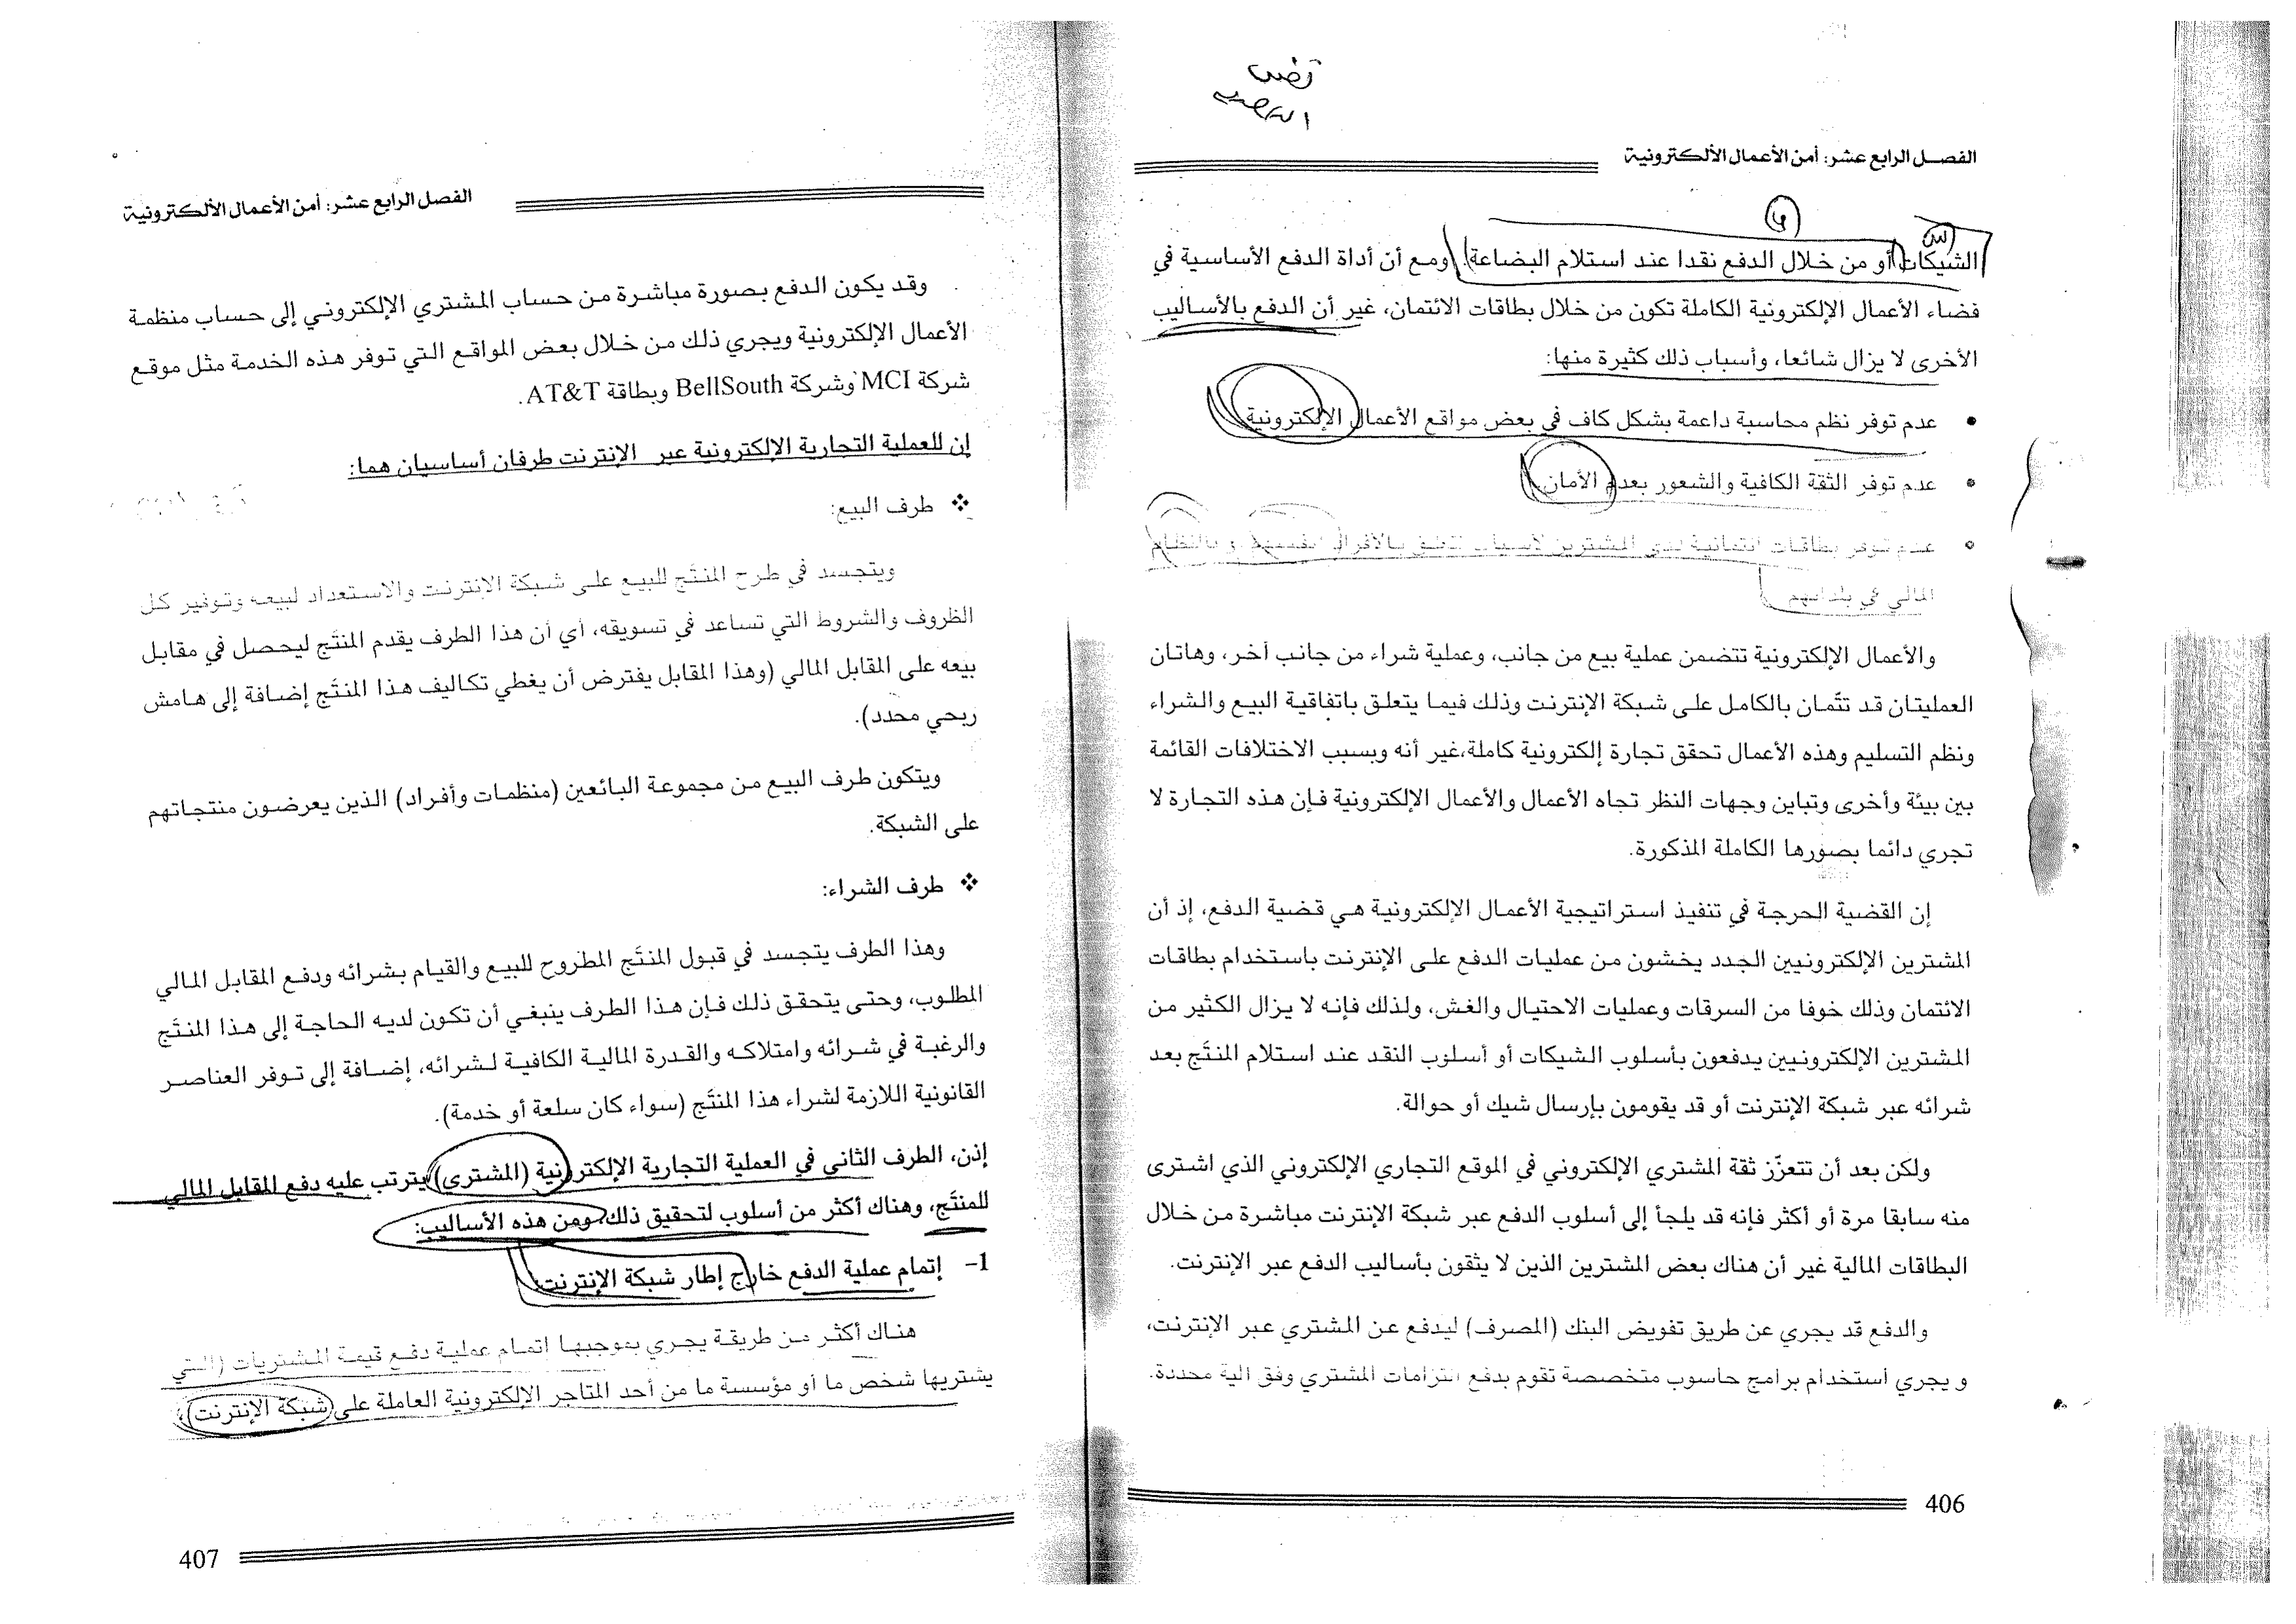 الفصل الرابع عشر: أمن الأعمال الألكترونية
الشيكات أو من خلال الدفع نقدا عند استلام البضاعة). ومع أن أداة الدفع الأساسية في
فضاء الأعمال الإلكترونية الكاملة تكون من خلال بطاقات الائتمان، غير أن الدفع بالأساليب
الأخرى لا يزال شائعا، وأسباب ذلك كثيرة منها:
• عدم توفر نظم محاسبة داعمة بشكل كاف في بعض مواقع الأعمال الإلكترونية
• عدم توفر الثقة الكافية والشعور بعدم الأمان.
• عدم توفر بطاقات ائتمانية لدى المشترين لأسباب تتعلق بالأفراد أنفسهم و بالنظام
المالي في بلدانهم
والأعمال الإلكترونية تتضمن عملية بيع من جانب، وعملية شراء من جانب أخر، وهاتان
العمليتان قد تتّمان بالكامل على شبكة الإنترنت وذلك فيما يتعلق باتفاقية البيع والشراء
ونظم التسليم وهذه الأعمال تحقق تجارة إلكترونية كاملة،غير أنه وبسبب الاختلافات القائمة
بين بيئة وأخرى وتباين وجهات النظر تجاه الأعمال والأعمال الإلكترونية فإن هذه التجارة لا
تجري دائما بصورها الكاملة المذكورة.
إن القضية الحرجة في تنفيذ استراتيجية الأعمال الإلكترونية هي قضية الدفع، إذ أن
المشترين الإلكترونيين الجدد يخشون من عمليات الدفع على الإنترنت باستخدام بطاقات
الائتمان وذلك خوفا من السرقات وعمليات الاحتيال والغش، ولذلك فإنه لا يزال الكثير من
المشترين الإلكترونيين يدفعون بأسلوب الشيكات أو أسلوب النقد عند استلام المنتَج بعد
شرائه عبر شبكة الإنترنت أو قد يقومون بإرسال شيك أو حوالة.
ولكن بعد أن تتعزّز ثقة المشتري الإلكتروني في الموقع التجاري الإلكتروني الذي اشترى
منه سابقا مرة أو أكثر فإنه قد يلجأ إلى أسلوب الدفع عبر شبكة الإنترنت مباشرة من خلال
البطاقات المالية غير أن هناك بعض المشترين الذين لا يثقون بأساليب الدفع عبر الإنترنت.
والدفع قد يجري عن طريق تفويض البنك (المصرف) ليدفع عن المشتري عبر الإنترنت،
و يجري استخدام برامج حاسوب متخصصة تقوم بدفع التزامات المشتري وفق آلية محددة.
406
الفصل الرابع عشر: أمن الأعمال الألكترونية
وقد يكون الدفع بصورة مباشرة من حساب المشتري الإلكتروني إلى حساب منظمة
الأعمال الإلكترونية ويجري ذلك من خلال بعض المواقع التي توفر هذه الخدمة مثل موقع
شركة MCI وشركة BellSouth وبطاقة AT&T.
إن للعملية التجارية الإلكترونية عبر الإنترنت طرفان أساسيان هما:
❖ طرف البيع:
ويتجسد في طرح المنتَج للبيع على شبكة الإنترنت والاستعداد لبيعه وتوفير كل
الظروف والشروط التي تساعد في تسويقه، أي أن هذا الطرف يقدم المنتَج ليحصل في مقابل
بيعه على المقابل المالي (وهذا المقابل يفترض أن يغطي تكاليف هذا المنتَج إضافة إلى هامش
ربحي محدد).
ويتكون طرف البيع من مجموعة البائعين (منظمات وأفراد) الذين يعرضون منتجاتهم
على الشبكة.
❖ طرف الشراء:
وهذا الطرف يتجسد في قبول المنتَج المطروح للبيع والقيام بشرائه ودفع المقابل المالي
المطلوب، وحتى يتحقق ذلك فإن هذا الطرف ينبغي أن تكون لديه الحاجة إلى هذا المنتَج
والرغبة في شرائه وامتلاكه والقدرة المالية الكافية لشرائه، إضافة إلى توفر العناصر
القانونية اللازمة لشراء هذا المنتَج (سواء كان سلعة أو خدمة).
إذن، الطرف الثاني في العملية التجارية الإلكترونية (المشتري) يترتب عليه دفع المقابل المالي
للمنتَج، وهناك أكثر من أسلوب لتحقيق ذلك، ومن هذه الأساليب:
1- إتمام عملية الدفع خارج إطار شبكة الإنترنت:
هناك أكثر من طريقة يجري بموجبها اتمام عملية دفع قيمة المشتريات (التي
يشتريها شخص ما أو مؤسسة ما من أحد المتاجر الإلكترونية العاملة على شبكة الإنترنت)،
407